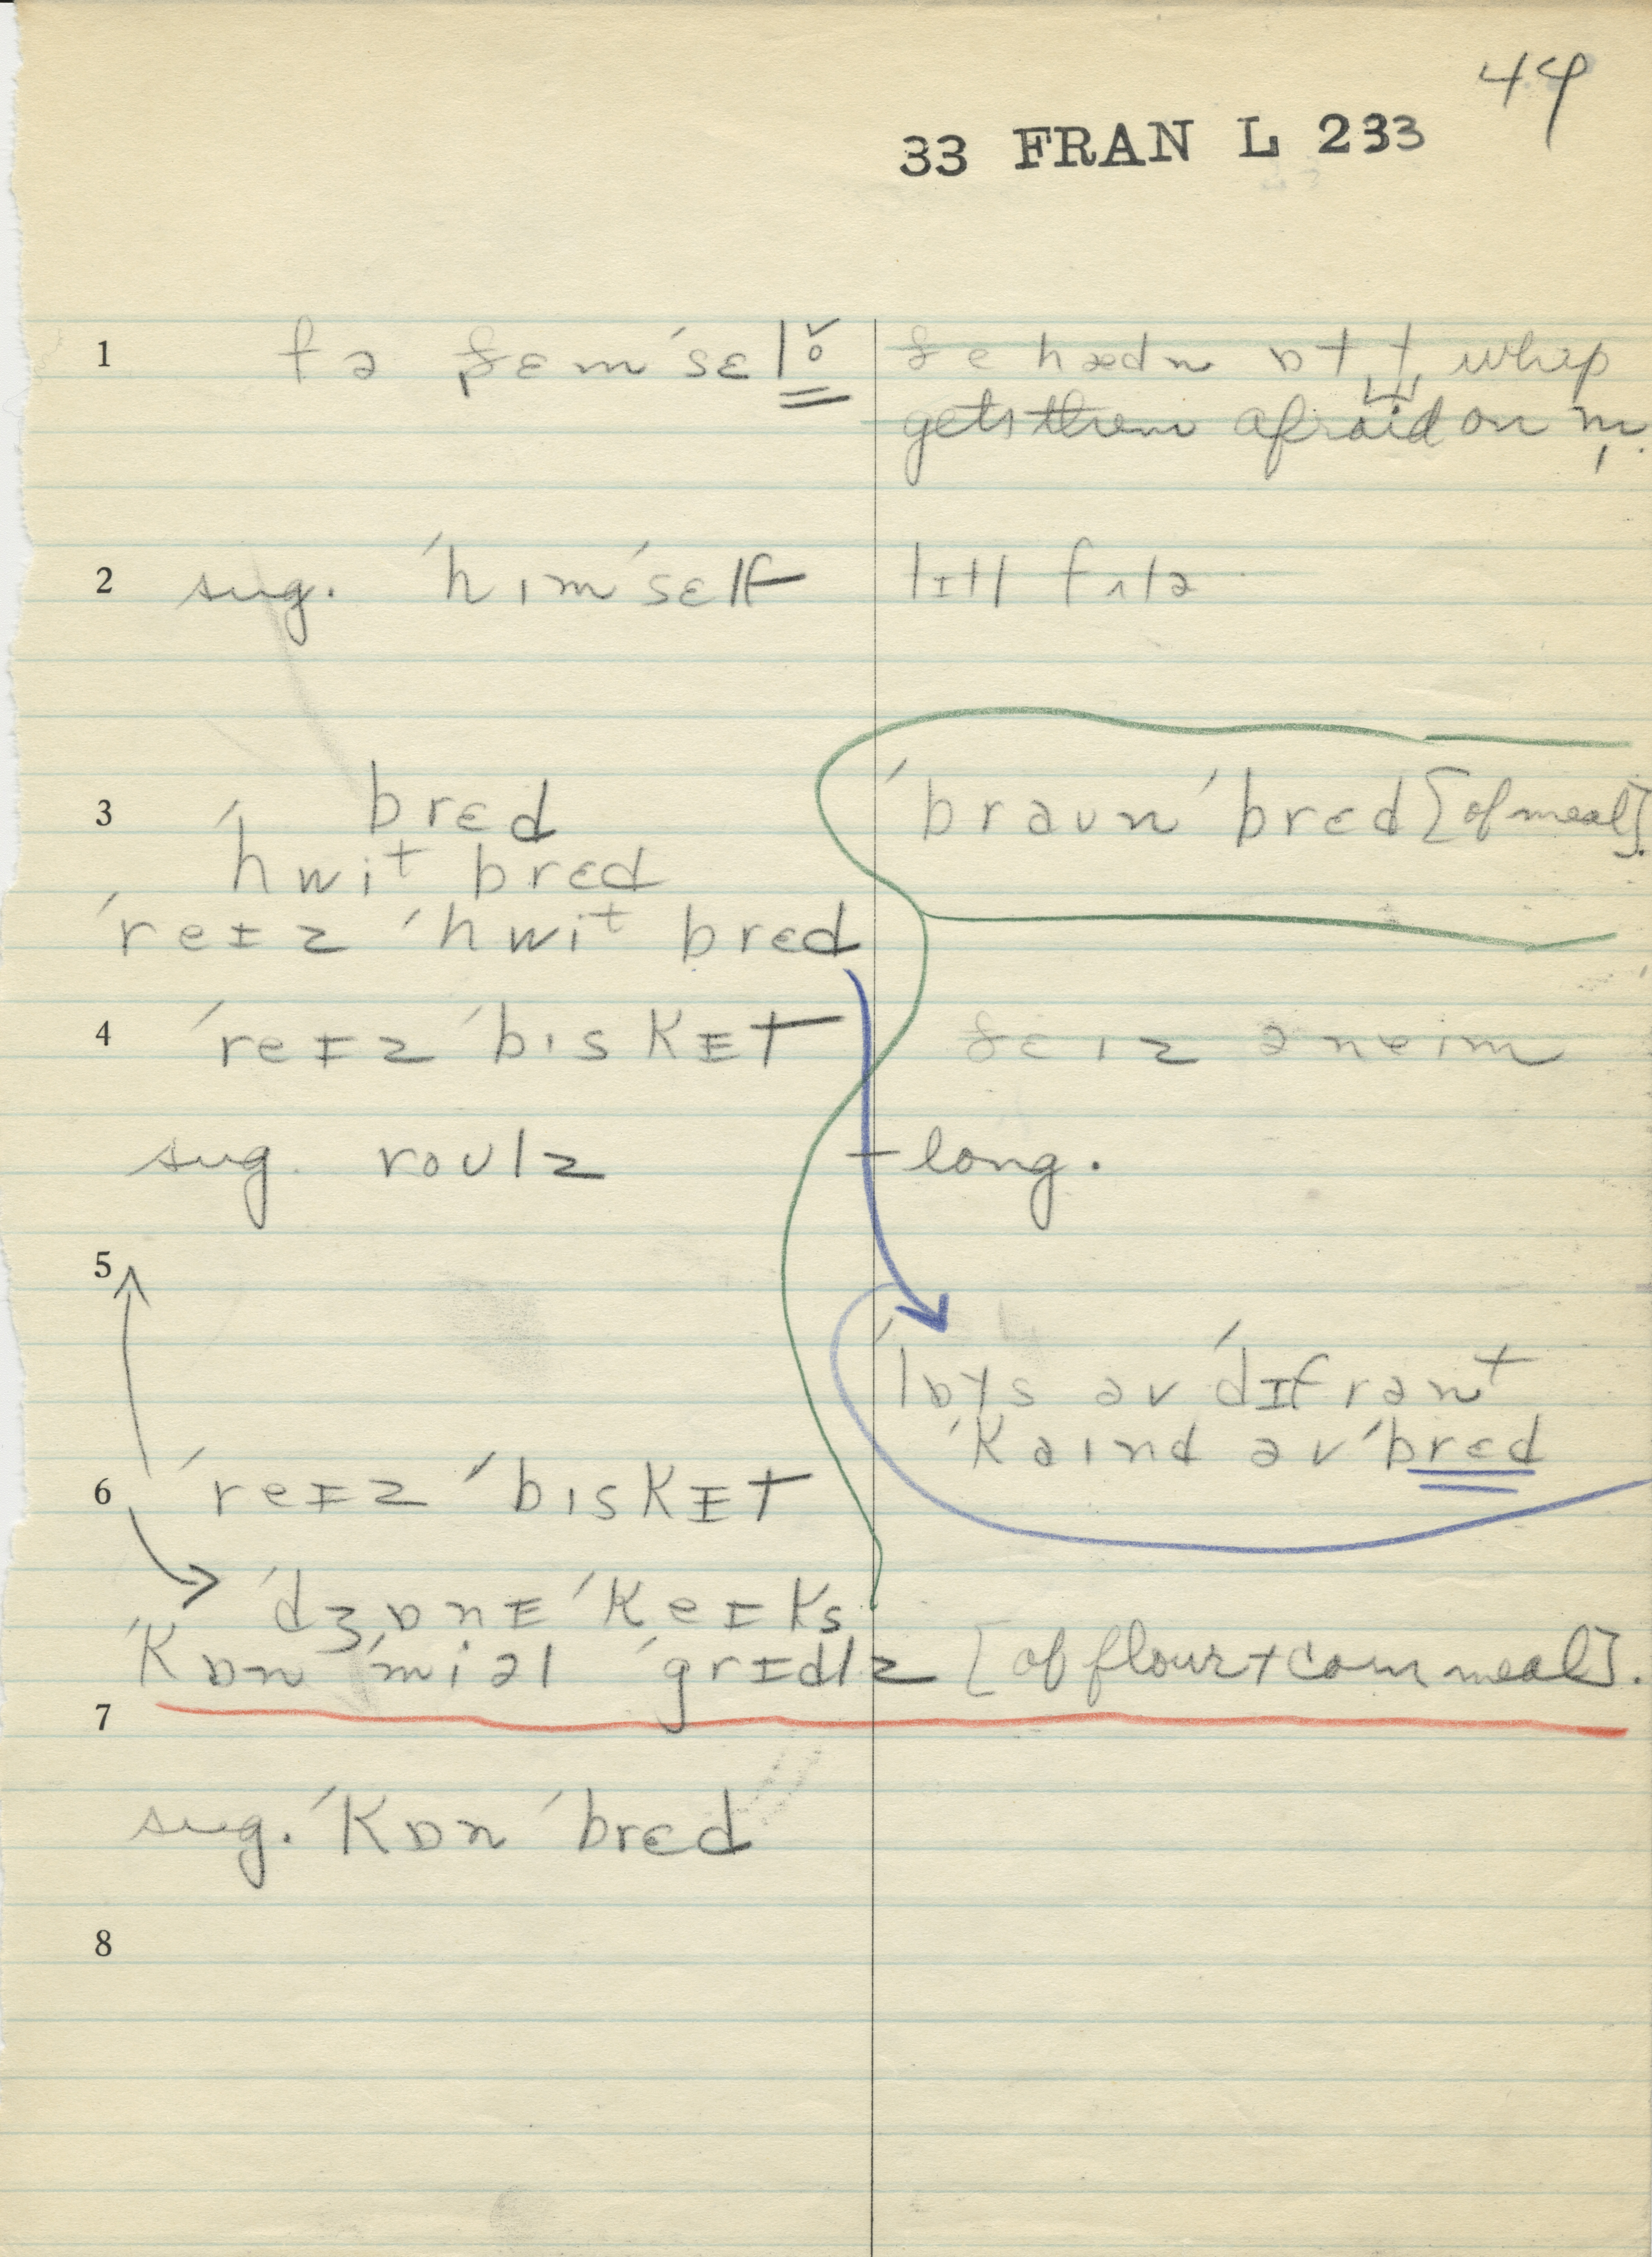 44
33 FRAN L 233
1 fə ðɛm ˈsɛl ðe hædn whip
gets them afraid on m̩.
2 sug. ˈhɪmˈsɛlf lɪtl fʌlə
3 bred ˈbraʊn ˈbrɛd [of meal].
ˈhwit brɛd
ˈreɪz ˈhwit brɛd
4 ˈreɪz ˈbɪskɪt ðɛ ɪz ə neɪm
sug. roʊlz – long.
5
ˈlɒts əv ˈdɪfrənt
ˈkaɪnd əv ˈbrɛd
6 ˈreɪz ˈbɪskɪt
ˈdʒɒnɪ ˈkeɪks
ˈkɒn ˈmiəl ˈgrɪdlz [of flour + corn meal].
7
sug. ˈkɒn ˈbrɛd
8